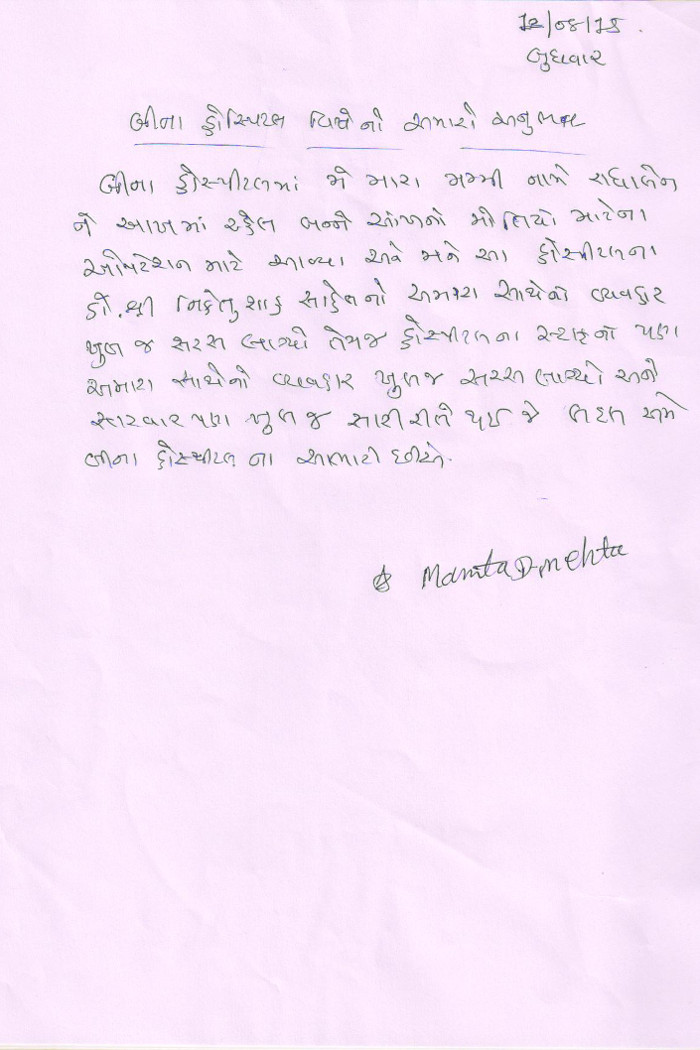 12/08/15.
બુધવાર
બીના હોસ્પિટલ વિષેનો અમારો અનુભવ
બીના હોસ્પીટલમાં મેં મારા મમ્મી નામે રાધાબેન
ને આખમાં રહેલ બન્ને આંખનો મોતિયો માટેના
ઓપરેશન માટે આવ્યા અને મને આ હોસ્પીટલના
ડૉ. શ્રી નિકેતુ શાહ સાહેબનો અમારા સાથેનો વ્યવહાર
ખુબ જ સરસ લાગ્યો તેમજ હોસ્પીટલના સ્ટાફનો પણ
અમારા સાથેનો વ્યવહાર ખુબજ સરસ લાગ્યો અને
સારવાર પણ ખુબ જ સારી રીતે થઈ જે બદલ અમે
બીના હોસ્પીટલ ના આભારી છીએ.
Mamta D. Mehta